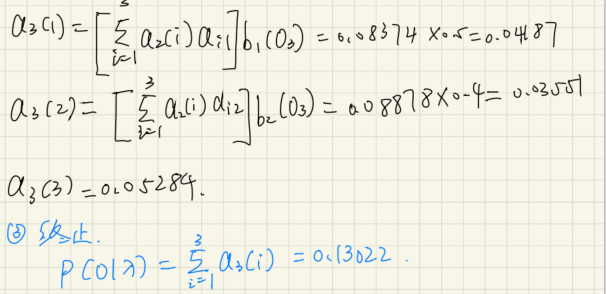 α₃(1) = [∑³ᵢ₌₁ α₂(i) aᵢ₁] b₁(O₃) = 0.08374 × 0.5 = 0.04187
α₃(2) = [∑³ᵢ₌₁ α₂(i) aᵢ₂] b₂(O₃) = 0.08878 × 0.4 = 0.03551
α₃(3) = 0.05284.
③ 终止.
P(O|λ) = ∑³ᵢ₌₁ α₃(i) = 0.13022.